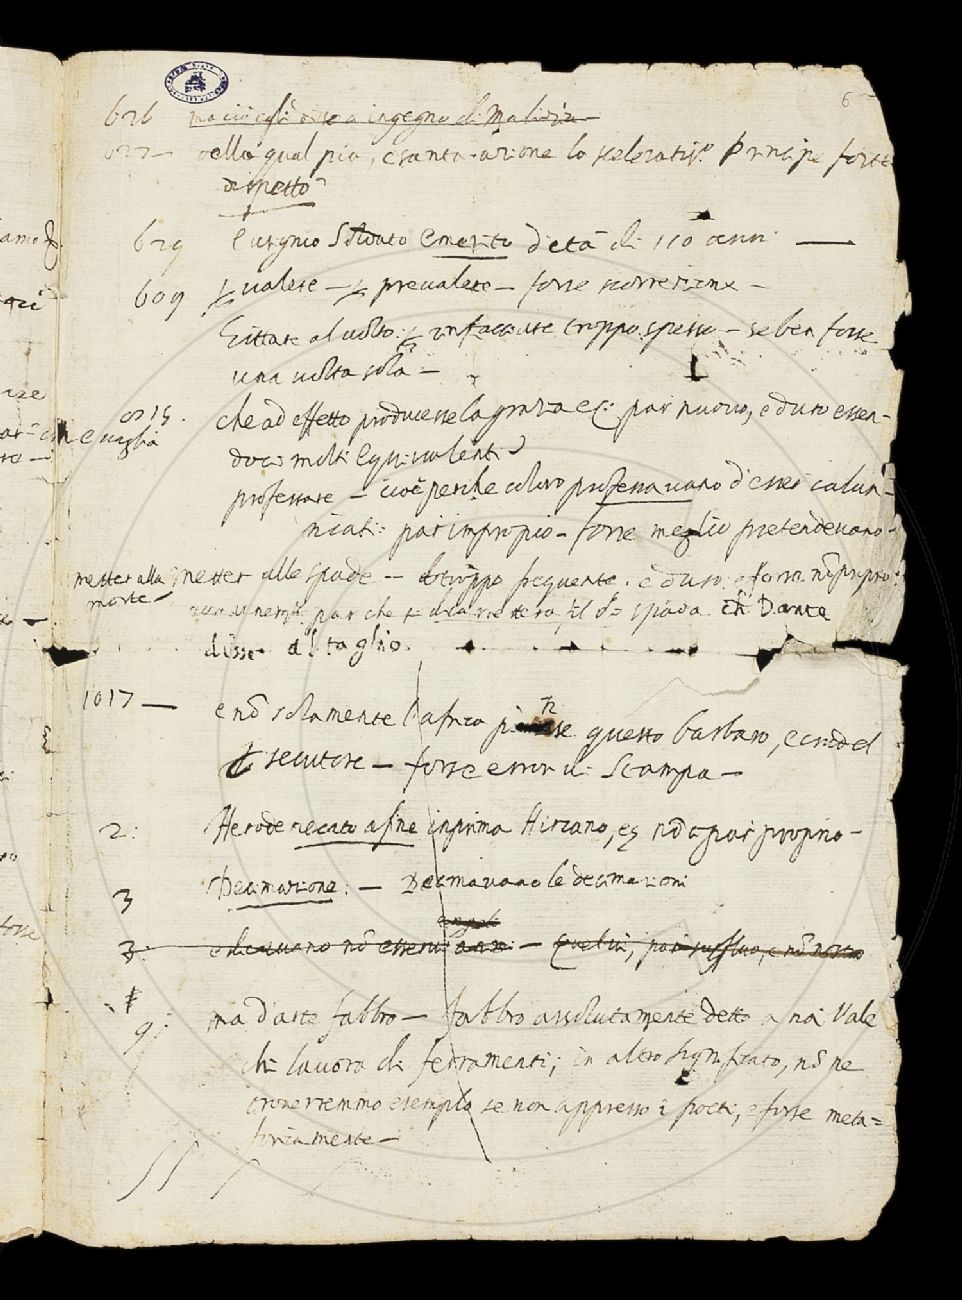 6
626 ma ciò egli disse a ingegno di malizia
627 — della qual pia, e santa azione lo sceleratiss.o Principe forte
dispetto
629 Eurgnio Soldato Emerito d'età di 110 anni —
609 valere — prevalere — forse scorrezione —
Gittare al volto: rinfacciare troppo spesso — se ben forse
una volta sola —
1015. che ad effetto producesse la grazia ec: par nuovo, e duro essen-
doci molti equivalenti
professare — cioè perche coloro professavano d'esser calun-
niati: par improprio — forse meglio pretendevano —
metter alla morte — metter alle spade — troppo frequente. e duro, e forse nõ proprio:
par che si dica metter a fil di spada cõ Dante
disse al taglio.
1017 — e nõ solamente l'africa questo barbaro, e crudel
secutore — forse error di Stampa —
2: Herode recato a fine inprima Hircano, nõ par proprio —
3 Decimazione: — Decimavano le decimazioni
3: e dicevano nõ esservi — par
9: ma d'arte fabbro — fabbro assolutamente detto a noi Vale
chi lavora di ferramenti; in altro significato, nõ ne
troverremmo esemplo se non appresso i poeti, e forse meta=
foricamente —